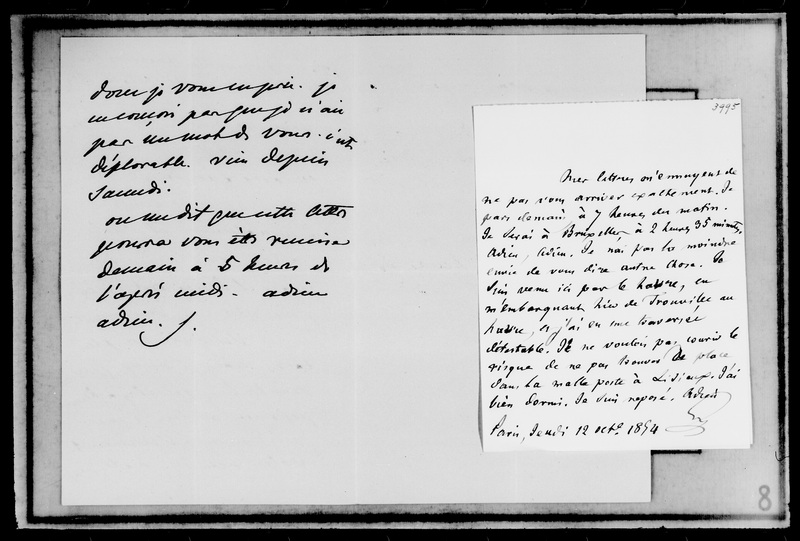 donc je vous en prie. je
par un mot de vous. c'est
déplorable. rien depuis
samedi.
on me dit que cette lettre
pourra vous être remise
demain à 5 heures de
l'après midi. adieu
adieu. J.
3995
Mes lettres m'ennuyent de
ne pas vous arriver exactement. Je
pars demain à 7 heures du matin.
Je serai à Bruxelles à 2 heures 35 minutes.
Adieu, Adieu. Je n'ai pas la moindre
envie de vous dire autre chose. Je
suis venu ici par le havre, en
m'embarquant hier de Trouville au
havre, et j'ai eu une traversée
détestable. Je ne voulois pas courir le
risque de ne pas trouver de place
dans la malle poste à Lisieux. J'ai
bien dormi. Je suis reposé. Adieu
Paris, Jeudi 12 octo. 1854
8